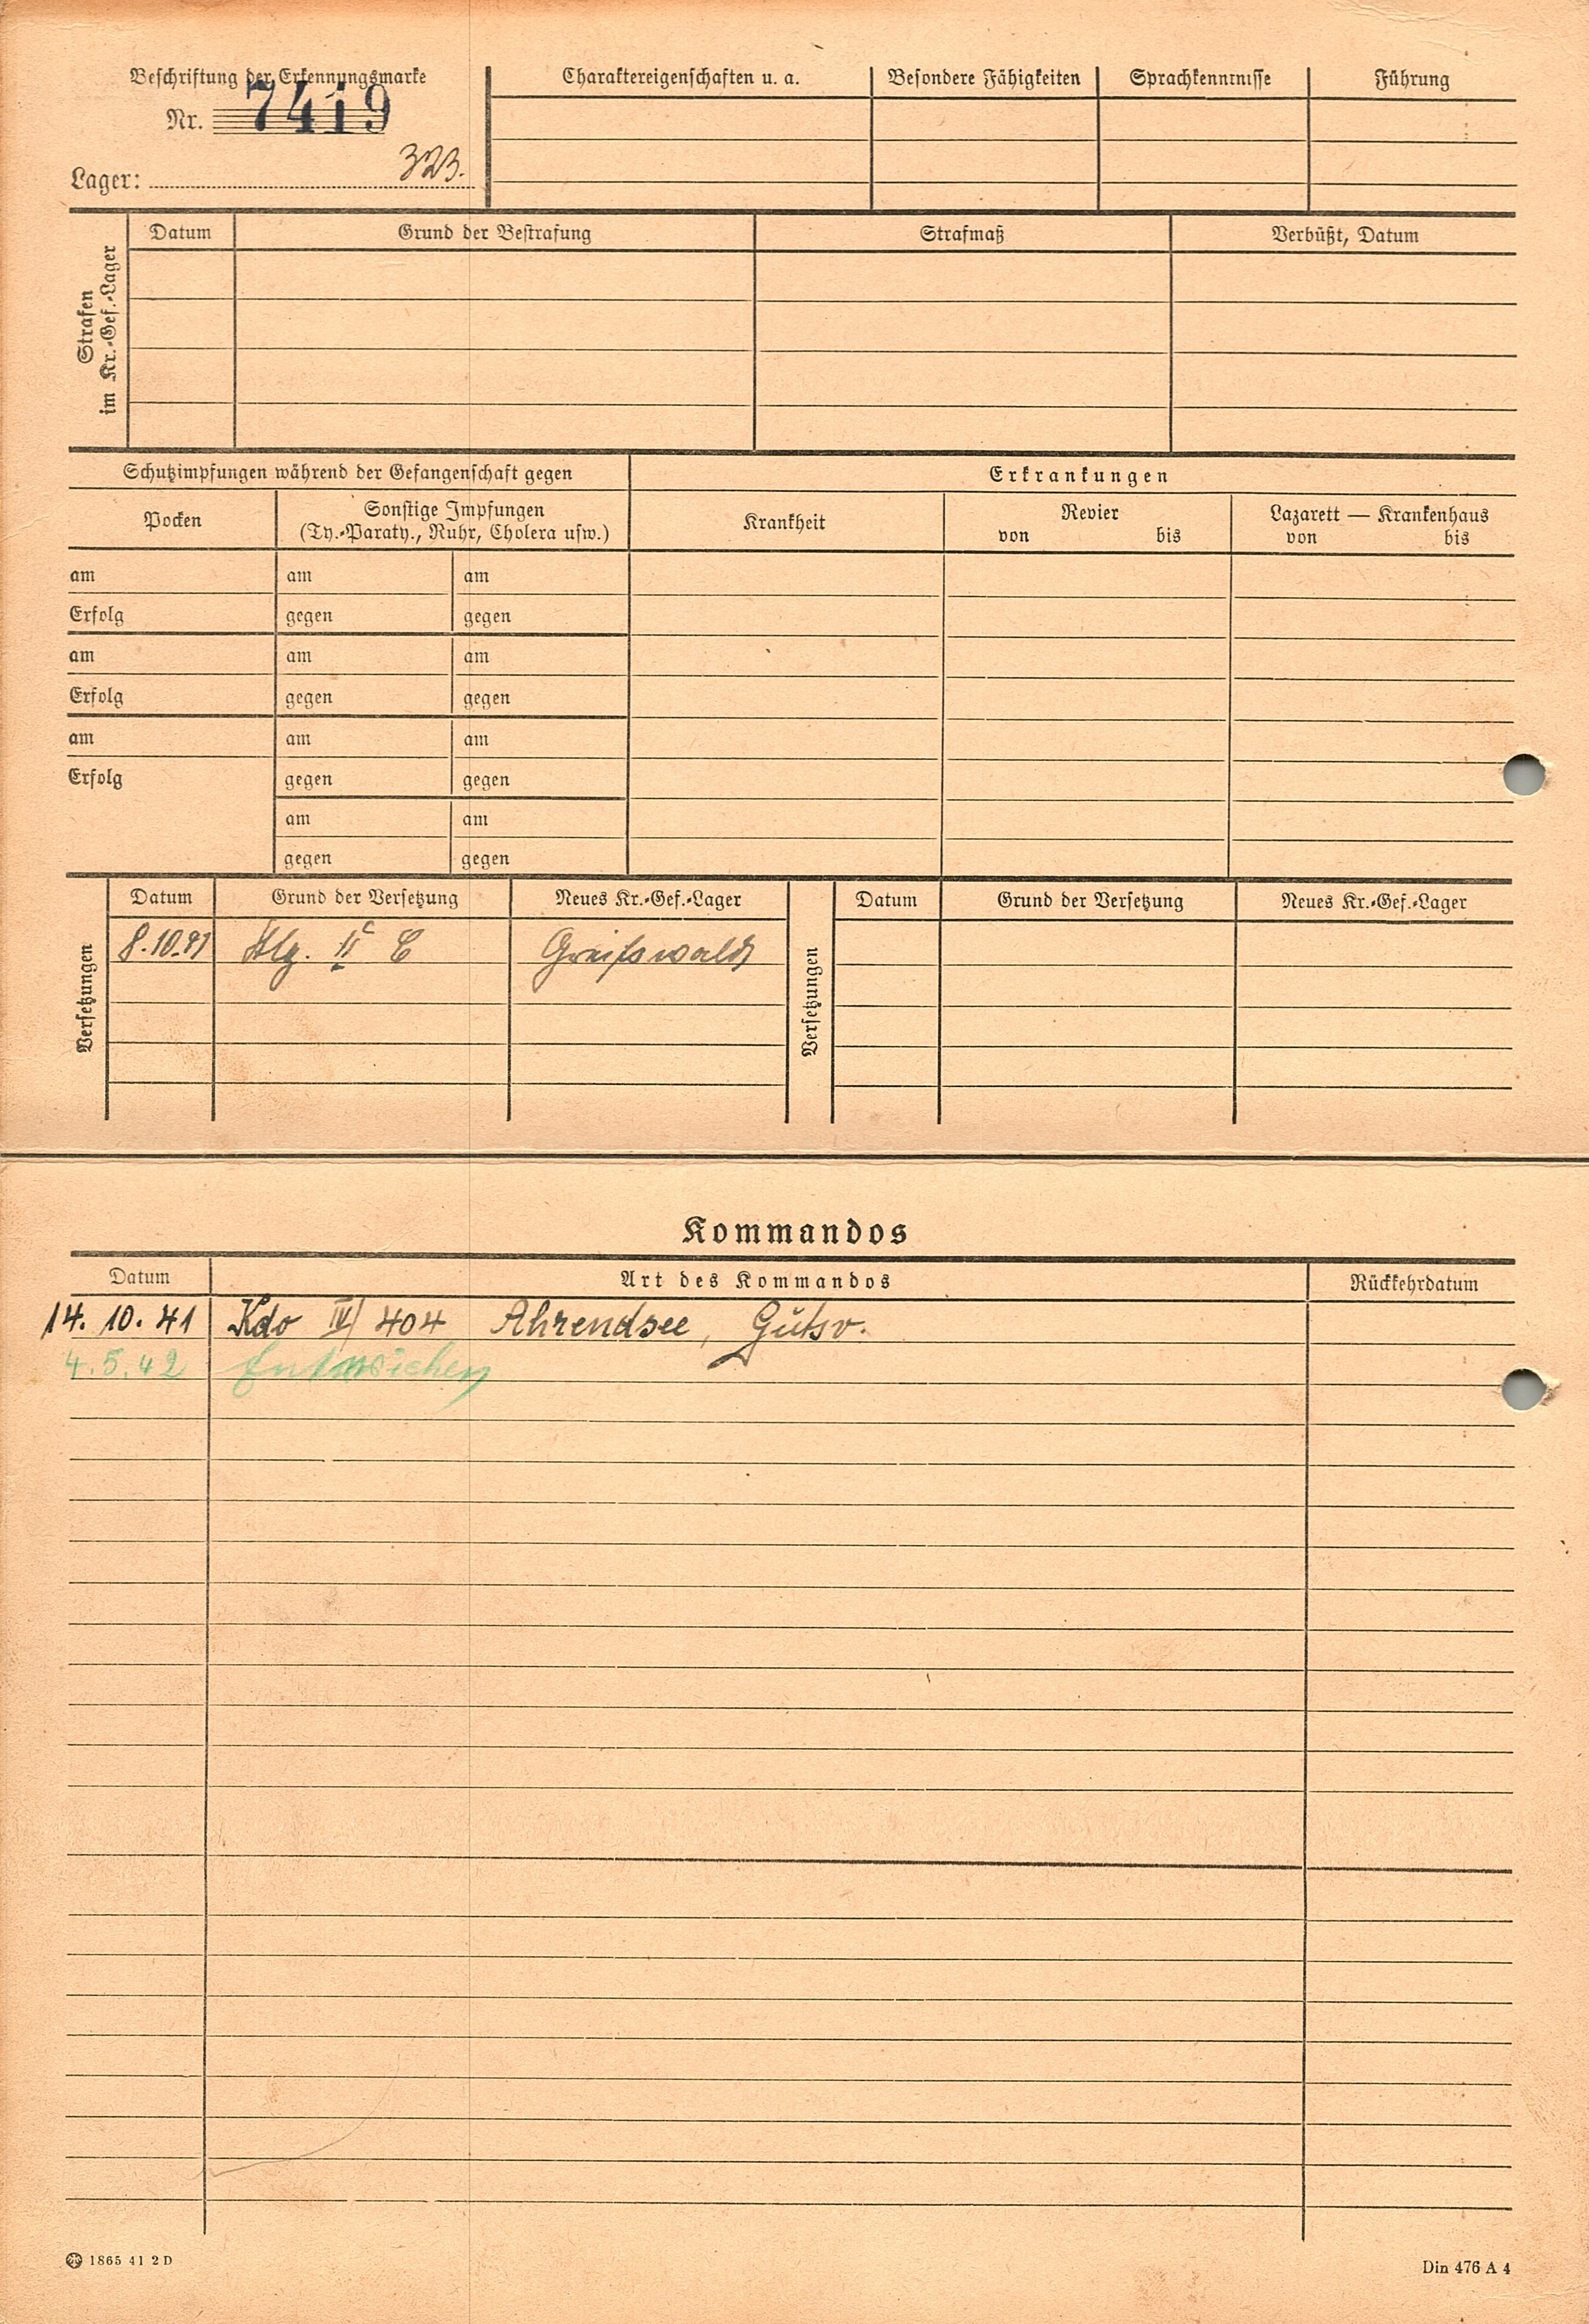 Beschriftung der Erkennungsmarke
Nr. 7419
Lager: 323.
Charaktereigenschaften u. a. Besondere Fähigkeiten Sprachkenntnisse Führung
Strafen
im Kr.-Gef.-Lager
Datum Grund der Bestrafung Strafmaß Verbüßt, Datum
Schutzimpfungen während der Gefangenschaft gegen
Pocken
Sonstige Impfungen
(Ty.-Paraty., Ruhr, Cholera usw.)
am am am
Erfolg gegen gegen
am am am
Erfolg gegen gegen
am am am
Erfolg gegen gegen
am am
gegen gegen
Erkrankungen
Krankheit
Revier
von bis
Lazarett — Krankenhaus
von bis
Versetzungen
Datum Grund der Versetzung Neues Kr.-Gef.-Lager
8.10.41 Stlg. II C Greifswald
Versetzungen
Datum Grund der Versetzung Neues Kr.-Gef.-Lager
Kommandos
Datum Art des Kommandos Rückkehrdatum
14. 10. 41 Kdo IV/404 Ahrendsee, Gutsv.
4.5.42 Entwichen
1865 41 2 D
Din 476 A 4